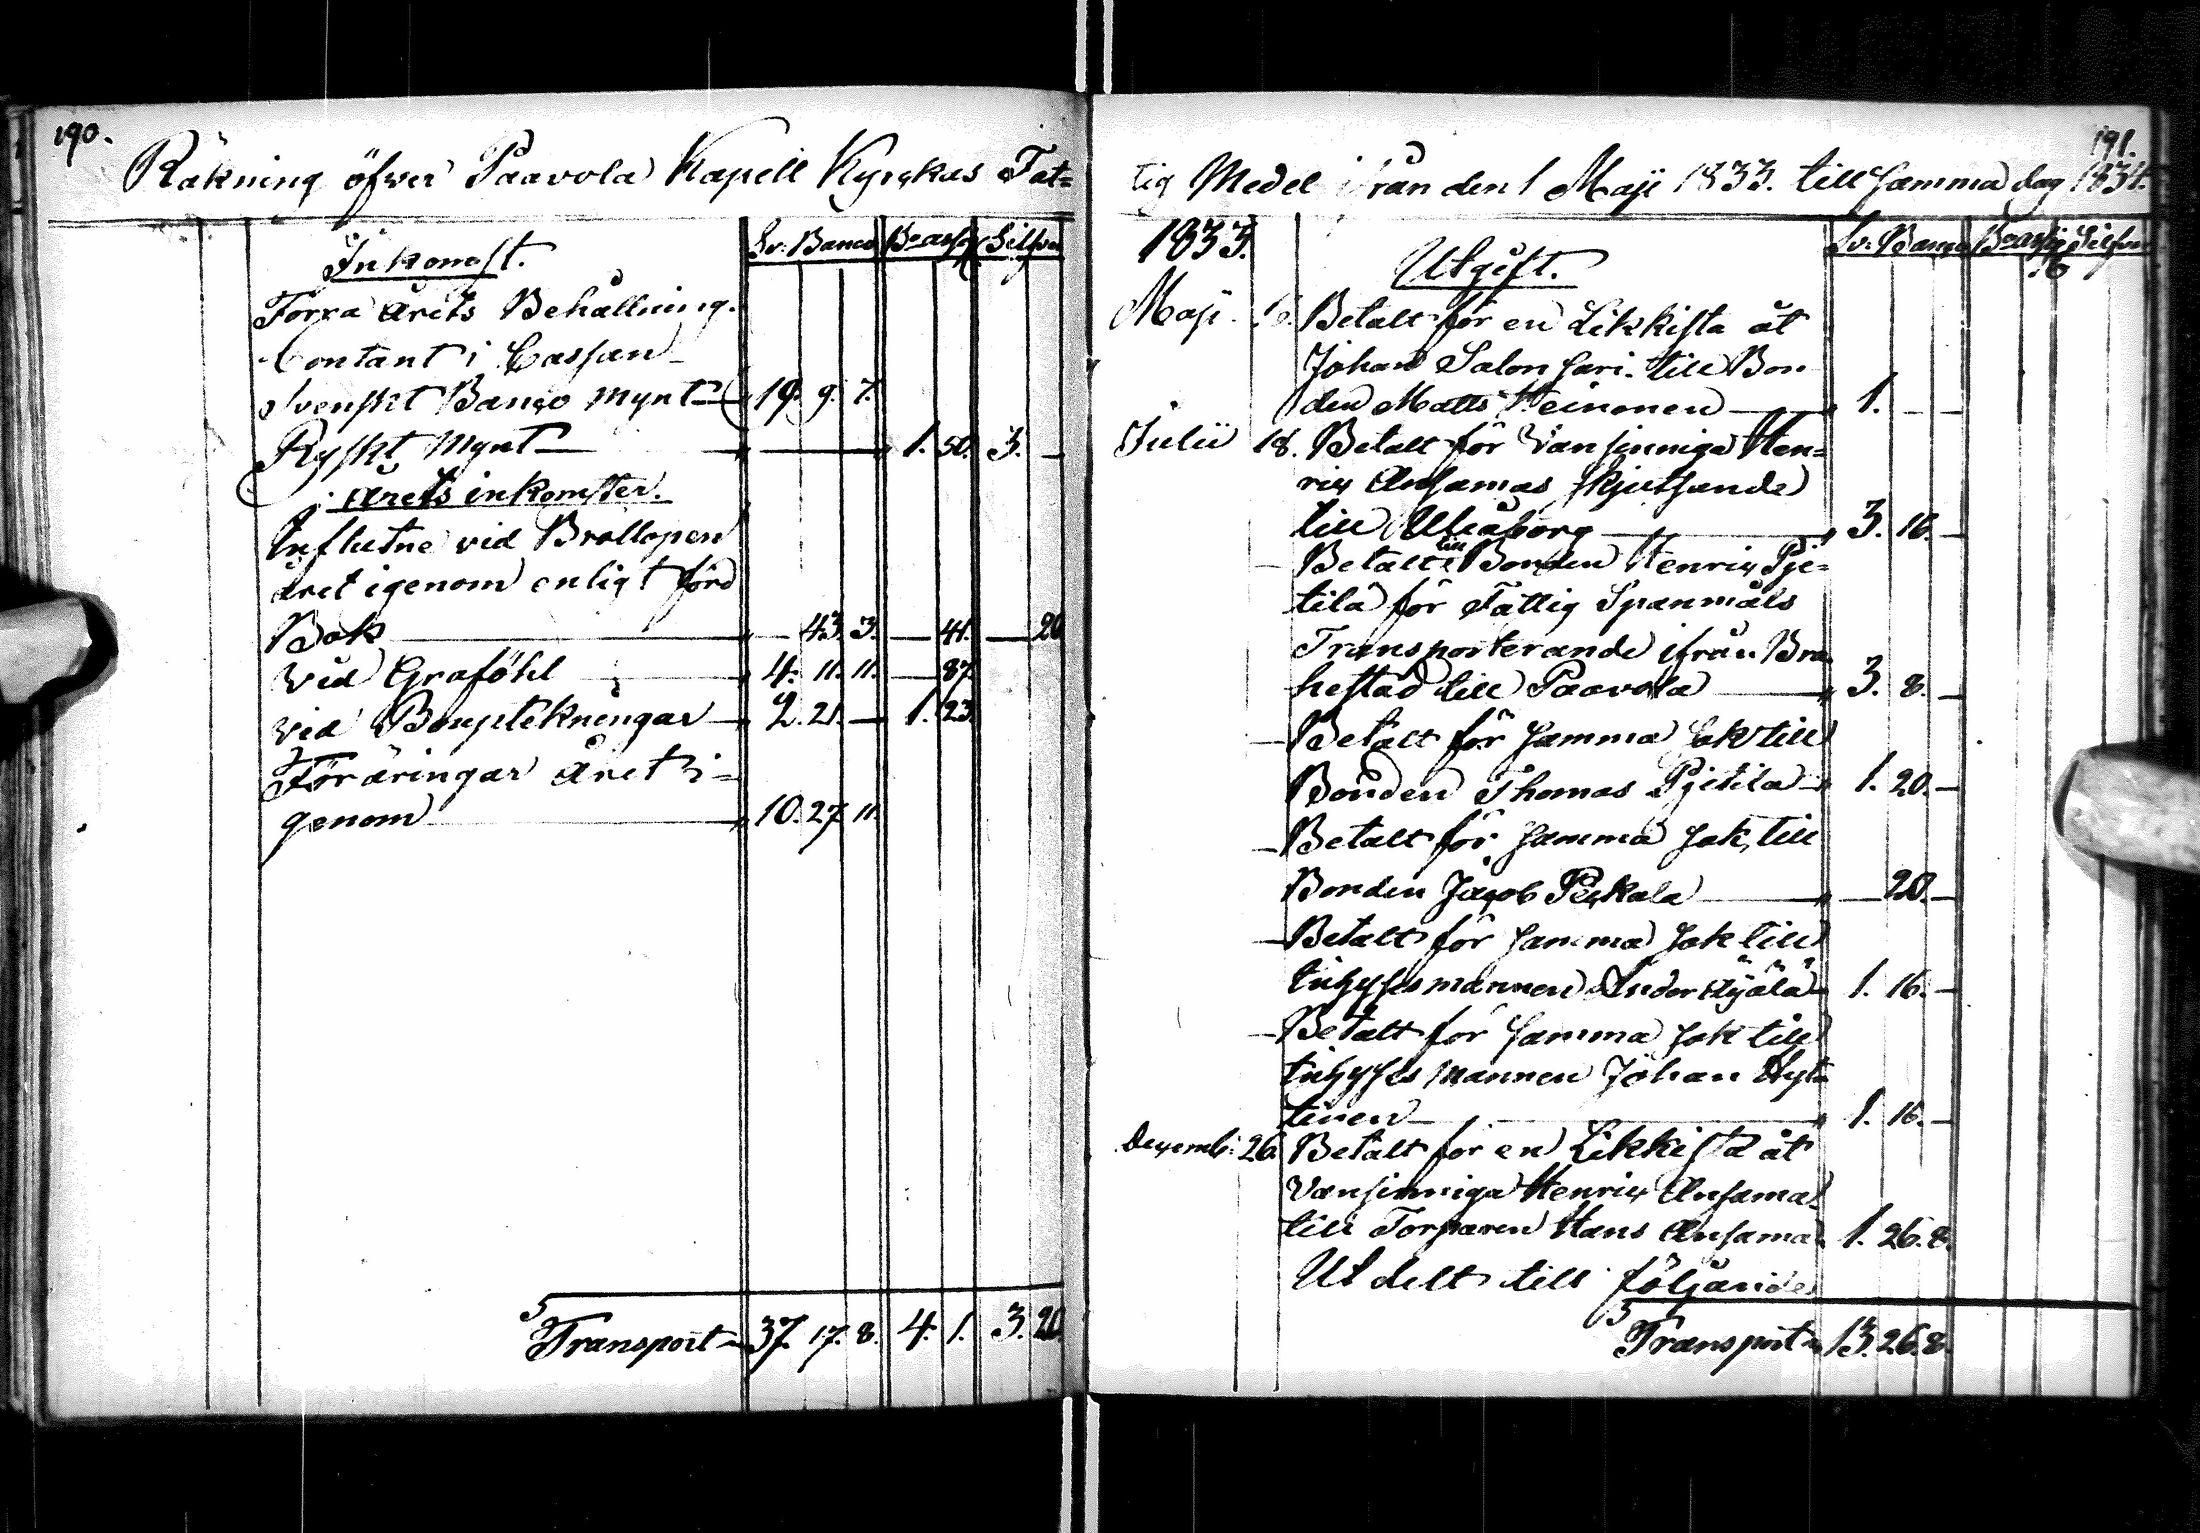 190.
Räkning öfver Paavola Kapell Kyrckas Fat=
Inkomst.
Sv: Banco Bo assig Silfver
Förra Årets Behållning.
Contant i Cassan
Svenskt Banco Mynt 19. 9. 7.
Ryskt Mynt 1. 50. 3. —
Årets inkomster.
Influtne vid Bröllopen
året igenom enligt förd
Bok — 43. 3. — 41. — 20
vid Graföhl 4. 11. 11. — 87.
vid Bouptekningar 2. 21. — 1. 23.
Föräringar året i=
genom 10. 27. 11.
Transport 37. 17. 8. 4. 1. 3. 20
191.
tig Medel ifrån den 1 Maji 1833. till samma dag 1834.
1833.
Utgift.
Sv: Banco Bo assig Silfver
Maji Betalt för en Likkista åt
Johan Salonsaari till Bon
den Matts Heinonen 1. — —
Julii 18. Betalt för Vansinniga Hen=
ric Ansamas skjutsande
till Uleåborg 3. 16. —
— Betalt till Bonden Henric Pje=
tilä för Fattig Spanmåls
Transporterande ifrån Bra
hestad till Paavola 3. 8. —
— Betalt för samma sak till
Bonden Thomas Pjetilä 1. 20. —
— Betalt för samma sak till
Bonden Jacob Peckala — 20. —
— Betalt för samma sak till
Inhyses mannen Ander Äijälä 1. 16. —
— Betalt för samma sak till
Inhyses mannen Johan Hyt=
tinen 1. 16. —
Decemb: 26. Betalt för en Likkista åt
Vansinniga Henric Ansama
till Torparen Hans Ansama 1. 26. 8.
Utdelt till följande
Transport 13. 26. 8.